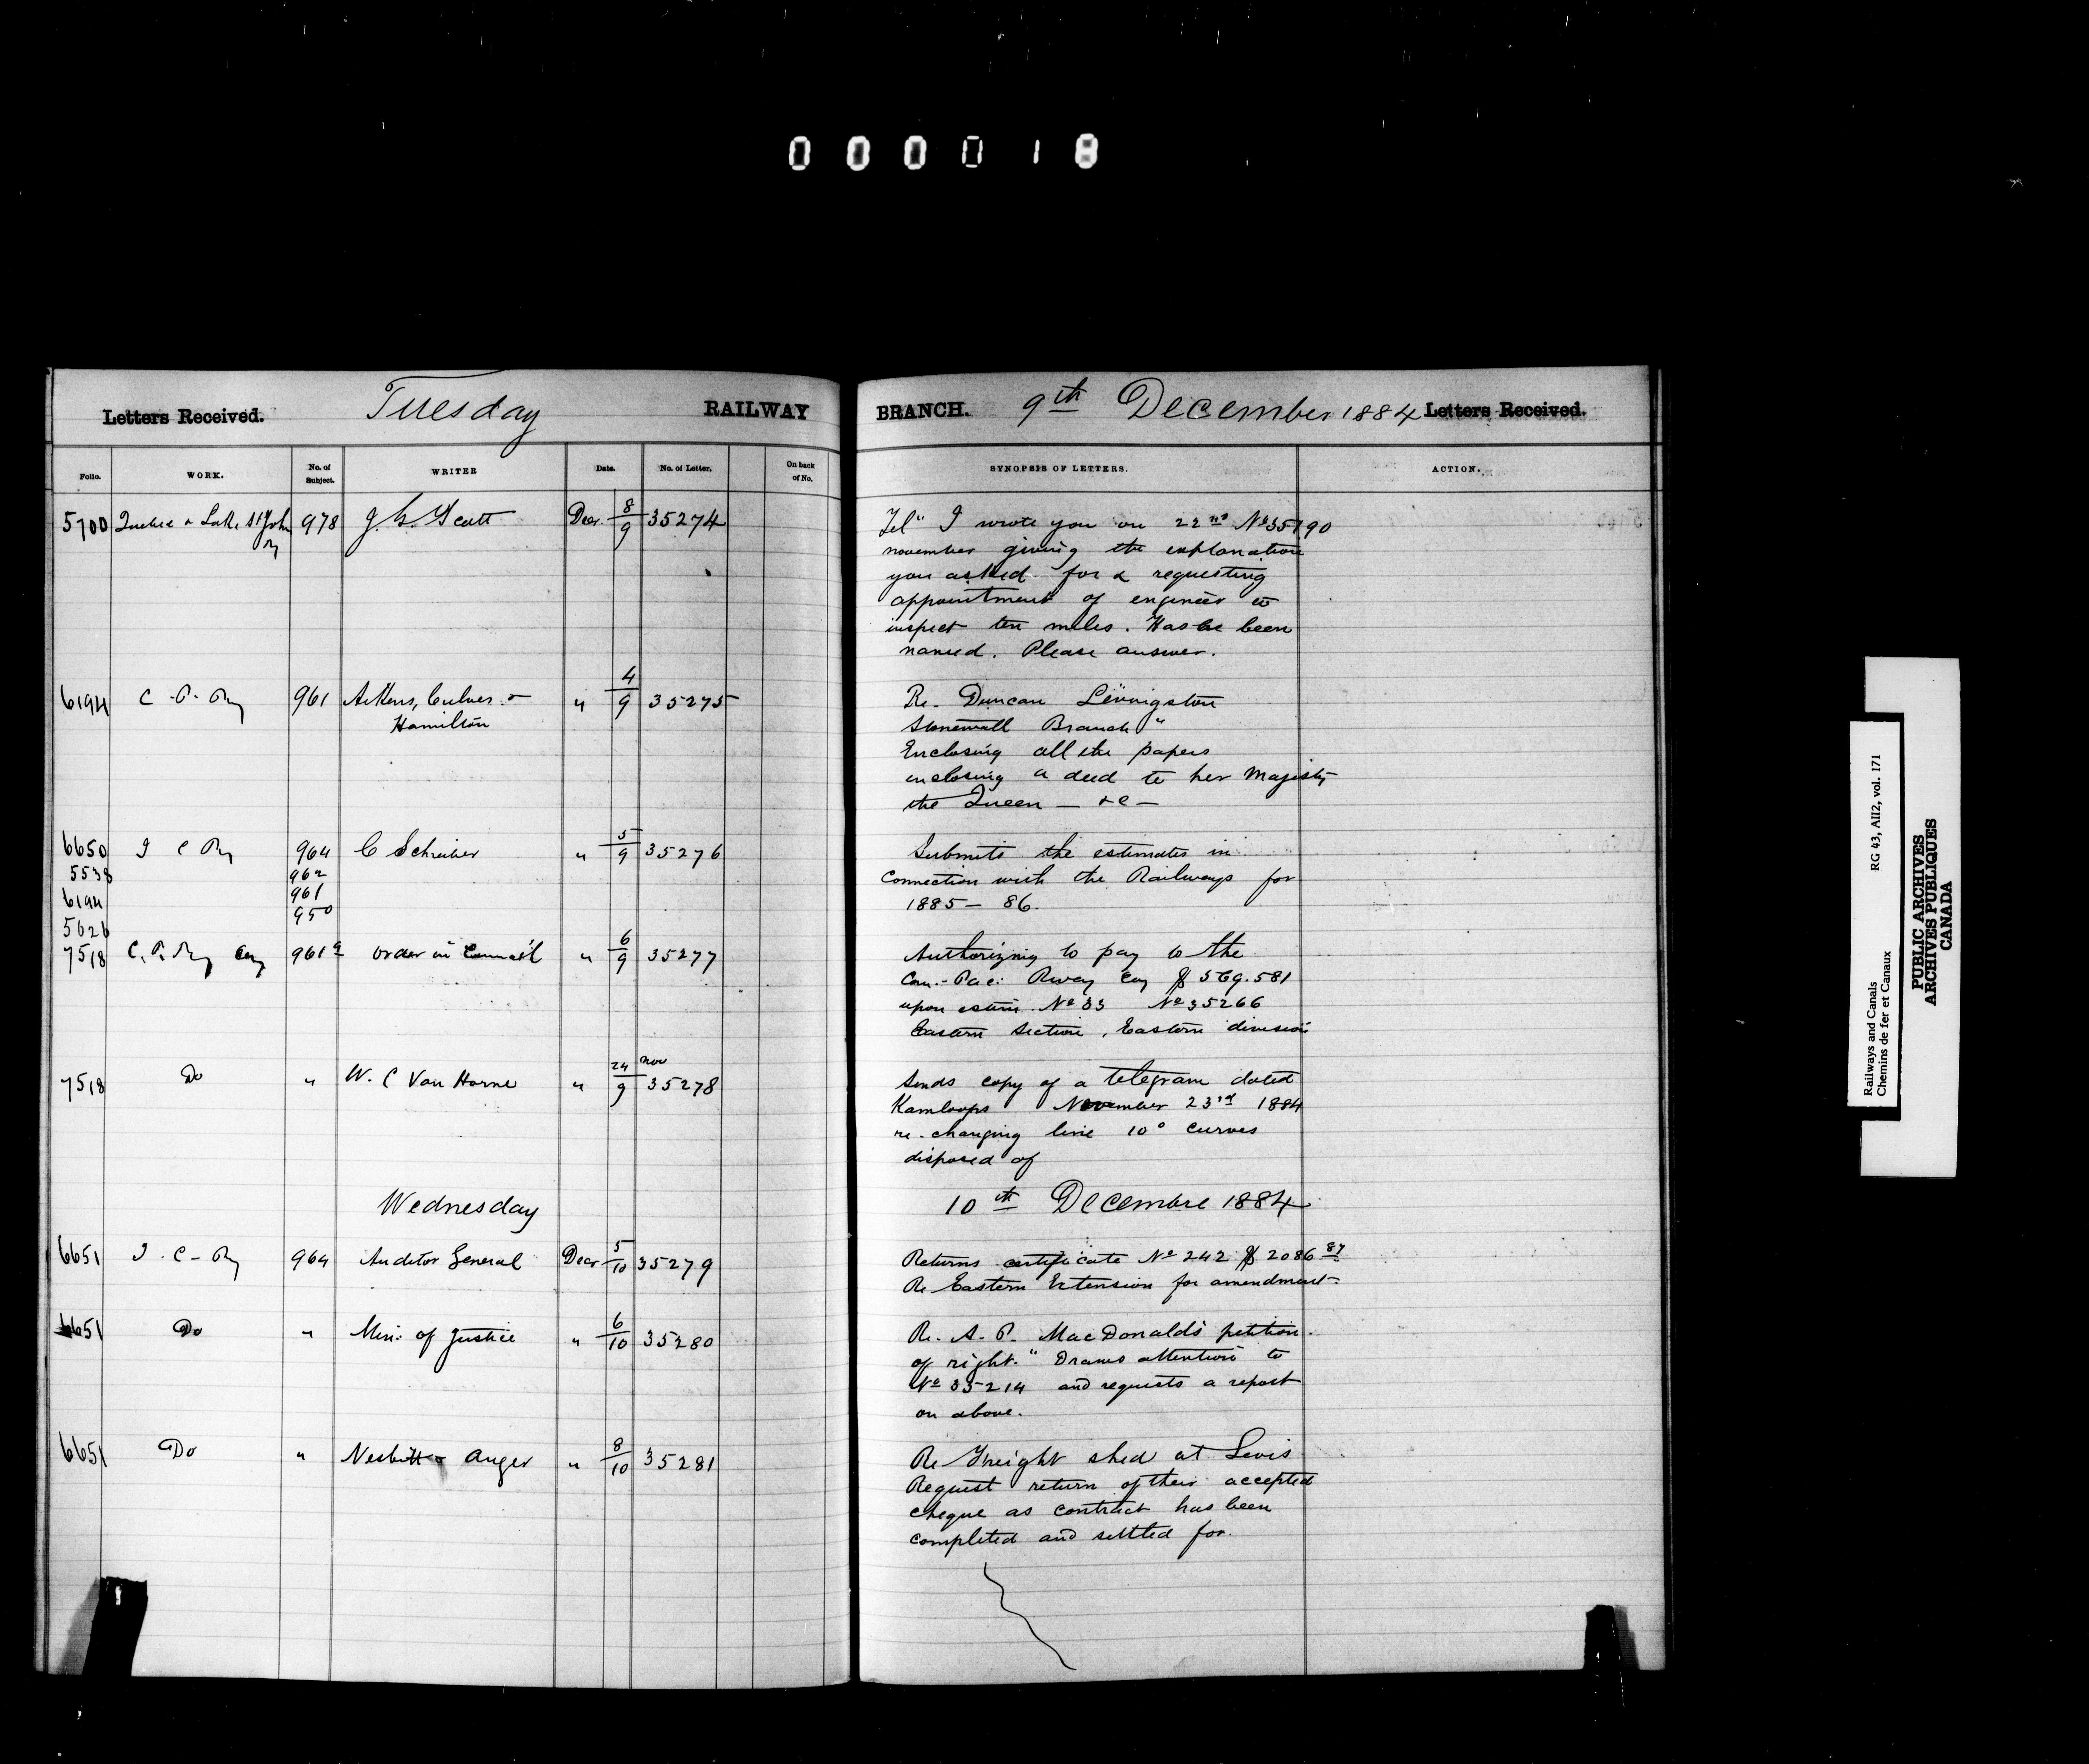 000018
Letters Received. Tuesday RAILWAY BRANCH. 9th December 1884 Letters Received.
Folio. WORK. No. of Subject. WRITER Date. No. of Letter. On back of No. SYNOPSIS OF LETTERS. ACTION.
5700 Quebec & Lake St John Ry 978 J. G. Scott Decr 8/9 35274 Tel" I wrote you on 22nd No 35190
november giving the explanation
you asked for & requesting
appointment of engineer to
inspect ten miles. Has he been
named. Please answer.
6194 C. P. Ry 961 Aikens, Culver & Hamilton " 4/9 35275 Re. Duncan Livingston
Stonewall Branch"
Enclosing all the papers
enclosing a deed to her Majesty
the Queen — &c —
6650 I C Ry 964 C Schreiber " 5/9 35276 Submits the estimates in
5538 962 connection with the Railways for
6194 961 1885 - 86.
5626 950
7518 C. P. Ry Coy 961a order in Council " 6/9 35277 Authorizing to pay to the
Can. Paci. Rway Coy $ 569.581
upon estim. No 33 No 35266
Eastern Section, Eastern division
7518 Do " W. C Van Horne " 24 nov/9 35278 Sends copy of a telegram dated
Kamloops November 23rd 1884
re. changing line 10° curves
disposed of
Wednesday 10th Decembre 1884
6651 I. C - Ry 964 Auditor General Decr 5/10 35279 Returns certificate No 242 $ 2086 87
Re Eastern Extension for amendment.
6651 Do " Min. of Justice " 6/10 35280 Re. A. P. MacDonald's petition.
of right." Draws attention to
No 35214 and requests a report
on above.
6651 Do " Nesbitt & Auger " 8/10 35281 Re Freight shed at Levis
Request return of their accepted
cheque as contract has been
completed and settled for.
Railways and Canals RG 43, AII2, vol. 171
Chemins de fer et Canaux
PUBLIC ARCHIVES
ARCHIVES PUBLIQUES
CANADA